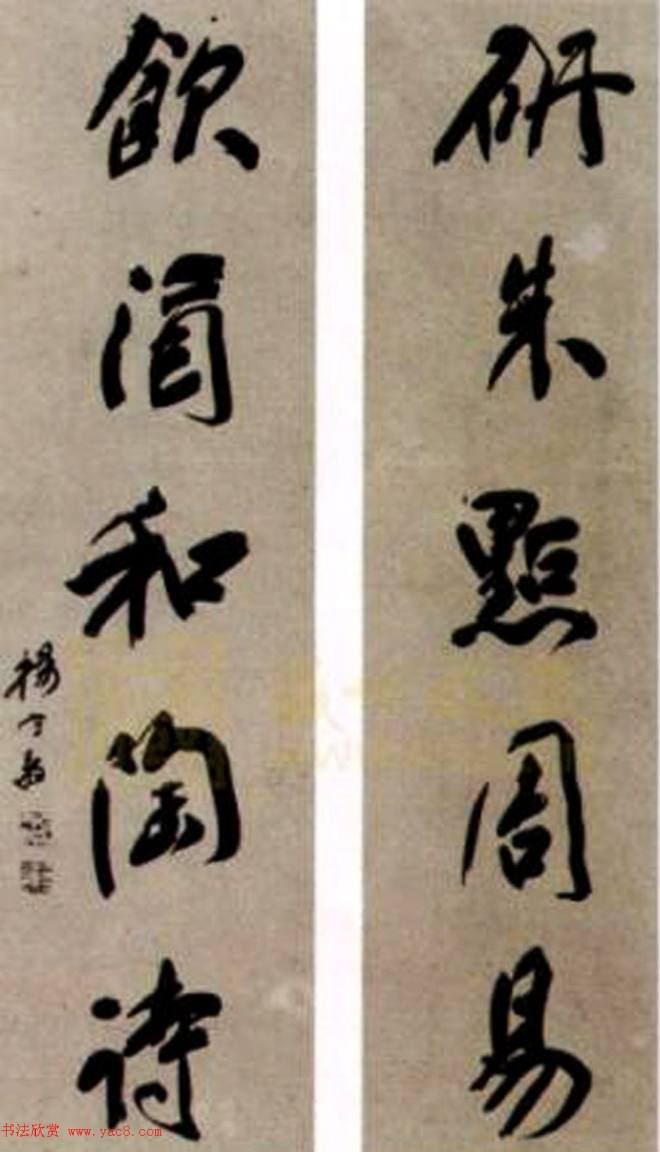 研朱點周易
飲酒和陶詩
楊守敬
书法欣赏 www.yac8.com